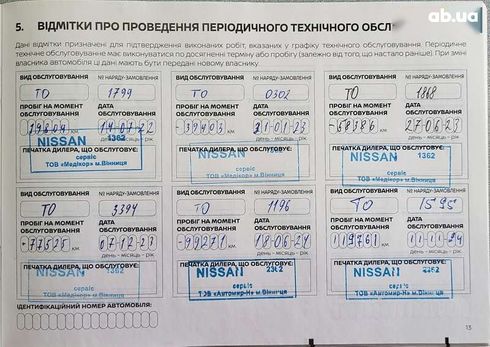 ab.ua
5. ВІДМІТКИ ПРО ПРОВЕДЕННЯ ПЕРІОДИЧНОГО ТЕХНІЧНОГО ОБСЛ
Дані відмітки призначені для підтвердження виконаних робіт, вказаних у графіку технічного обслуговування. Періодичне
технічне обслуговування має виконуватися по досягненні терміну або пробігу (залежно від того, що настало раніше). При зміні
власника автомобіля ці дані мають бути передані новому власнику.
ВИД ОБСЛУГОВУВАННЯ № НАРЯДУ-ЗАМОВЛЕННЯ ВИД ОБСЛУГОВУВАННЯ № НАРЯДУ-ЗАМОВЛЕННЯ ВИД ОБСЛУГОВУВАННЯ № НАРЯДУ-ЗАМОВЛЕННЯ
ТО 1799 ТО 0302 ТО 1868
ПРОБІГ НА МОМЕНТ ОБСЛУГОВУВАННЯ ДАТА ОБСЛУГОВУВАННЯ ПРОБІГ НА МОМЕНТ ОБСЛУГОВУВАННЯ ДАТА ОБСЛУГОВУВАННЯ ПРОБІГ НА МОМЕНТ ОБСЛУГОВУВАННЯ ДАТА ОБСЛУГОВУВАННЯ
14.07.22 -39403 км 21.01.23 -58386 км 27.06.23
день - місяць - рік день - місяць - рік
ПЕЧАТКА ДИЛЕРА, ЩО ОБСЛУГОВУЄ: ПЕЧАТКА ДИЛЕРА, ЩО ОБСЛУГОВУЄ: ПЕЧАТКА ДИЛЕРА, ЩО ОБСЛУГОВУЄ:
NISSAN 1362 NISSAN NISSAN 1362
сервіс сервіс сервіс
ТОВ «Медікор» м.Вінниця ТОВ «Медікор» м.Вінниця ТОВ «Медікор» м.Вінниця
ВИД ОБСЛУГОВУВАННЯ № НАРЯДУ-ЗАМОВЛЕННЯ ВИД ОБСЛУГОВУВАННЯ № НАРЯДУ-ЗАМОВЛЕННЯ ВИД ОБСЛУГОВУВАННЯ № НАРЯДУ-ЗАМОВЛЕННЯ
ТО 3394 ТО 1196 ТО 1595
ПРОБІГ НА МОМЕНТ ОБСЛУГОВУВАННЯ ДАТА ОБСЛУГОВУВАННЯ ПРОБІГ НА МОМЕНТ ОБСЛУГОВУВАННЯ ДАТА ОБСЛУГОВУВАННЯ ПРОБІГ НА МОМЕНТ ОБСЛУГОВУВАННЯ ДАТА ОБСЛУГОВУВАННЯ
-77525 км 07.12.23 -99271 км 18.06.24 119761 км 11.11.24
день - місяць - рік день - місяць - рік день - місяць - рік
ПЕЧАТКА ДИЛЕРА, ЩО ОБСЛУГОВУЄ: ПЕЧАТКА ДИЛЕРА, ЩО ОБСЛУГОВУЄ: ПЕЧАТКА ДИЛЕРА, ЩО ОБСЛУГОВУЄ:
NISSAN 1362 NISSAN 2362 NISSAN 2362
сервіс сервіс сервіс
ТОВ «Медікор» м.Вінниця ТОВ «Автомир-Н» м.Вінниця ТОВ «Автомир-Н» м.Вінниця
ІДЕНТИФІКАЦІЙНИЙ НОМЕР АВТОМОБІЛЯ:
13